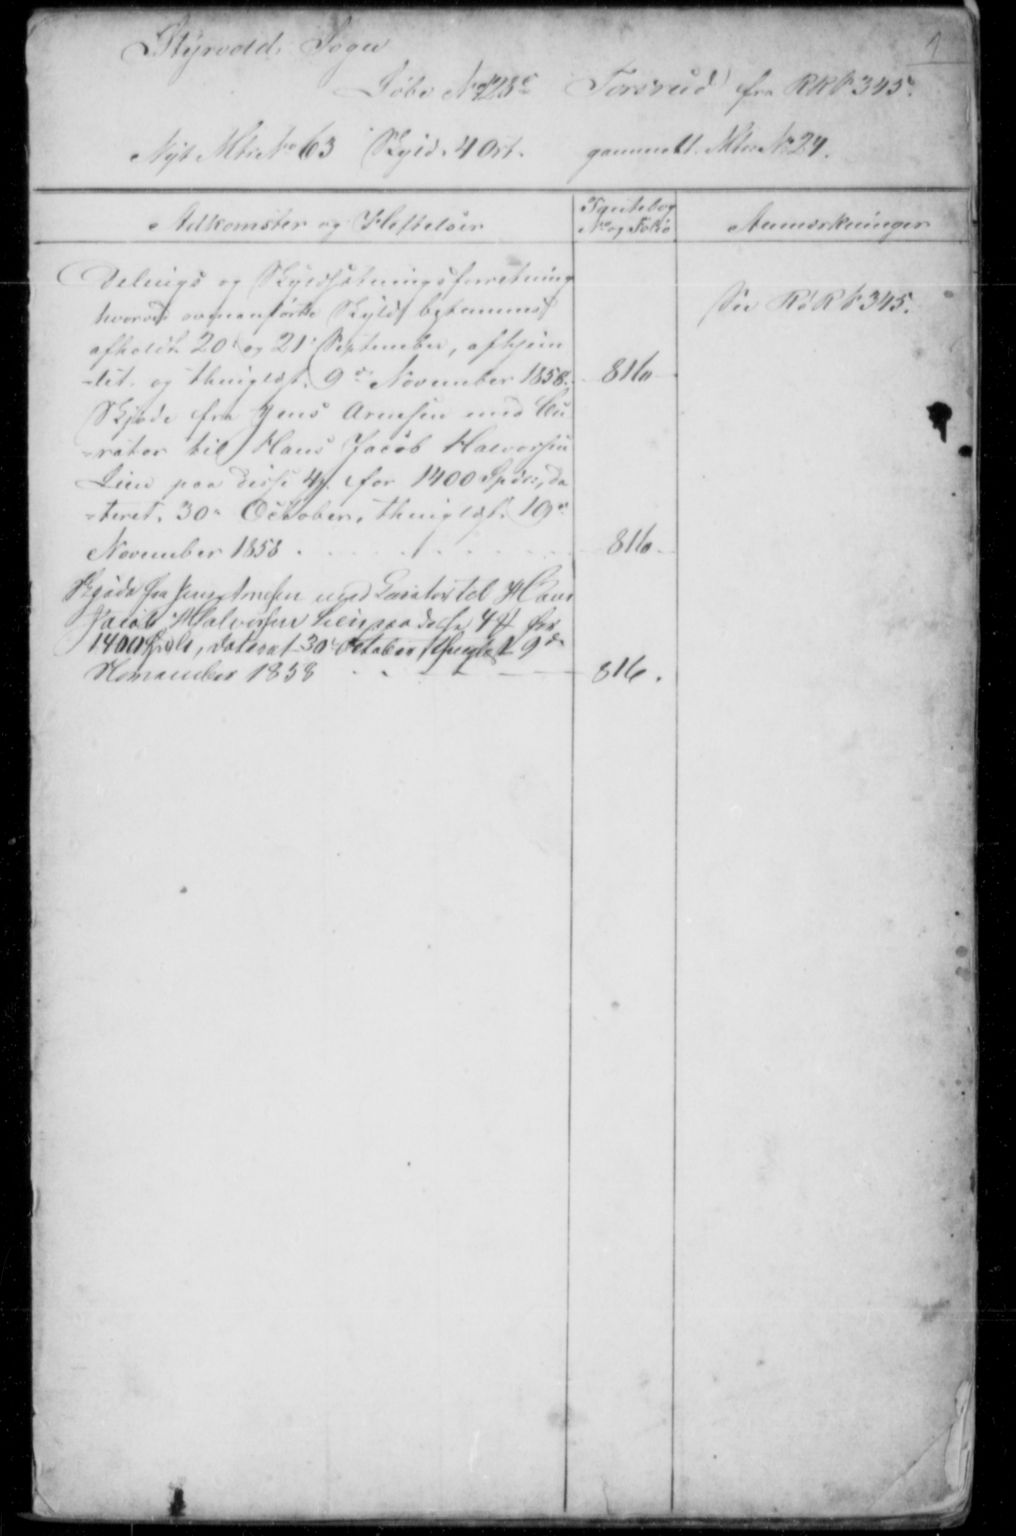 1
Styrvold Sogn
Løbe No 123c Torsrud fra R R F 345.
Nyt Mtr No 63 Skyld. 4 Ort. gammelt. Mtr No 24.
Adkomster og Heftelser
Pantebog
No og Folio
Anmærkninger
Delings og Skyldsætningsforretning
hvorved ovenanførte Skyld bestemmes
afholdt 20de og 21de September, afhjem
-let og thinglæst 9de November 1858. 816
See R R F 345.
Skjøde fra Jens Arnesen med Cu
-rator til Hans Jacob Halvorsen
Lien paa disse 4 for 1400 Spdlr, da
-teret 30te October, thinglæst 19de
November 1858 . . . . 816.
Skjøde fra Jens Arnesen med Curator til Hans
Jacob Halvorsen Lien paa disse 4 for
1400 Spdlr, dateret 30te October, thinglæst 9de
November 1858 816.